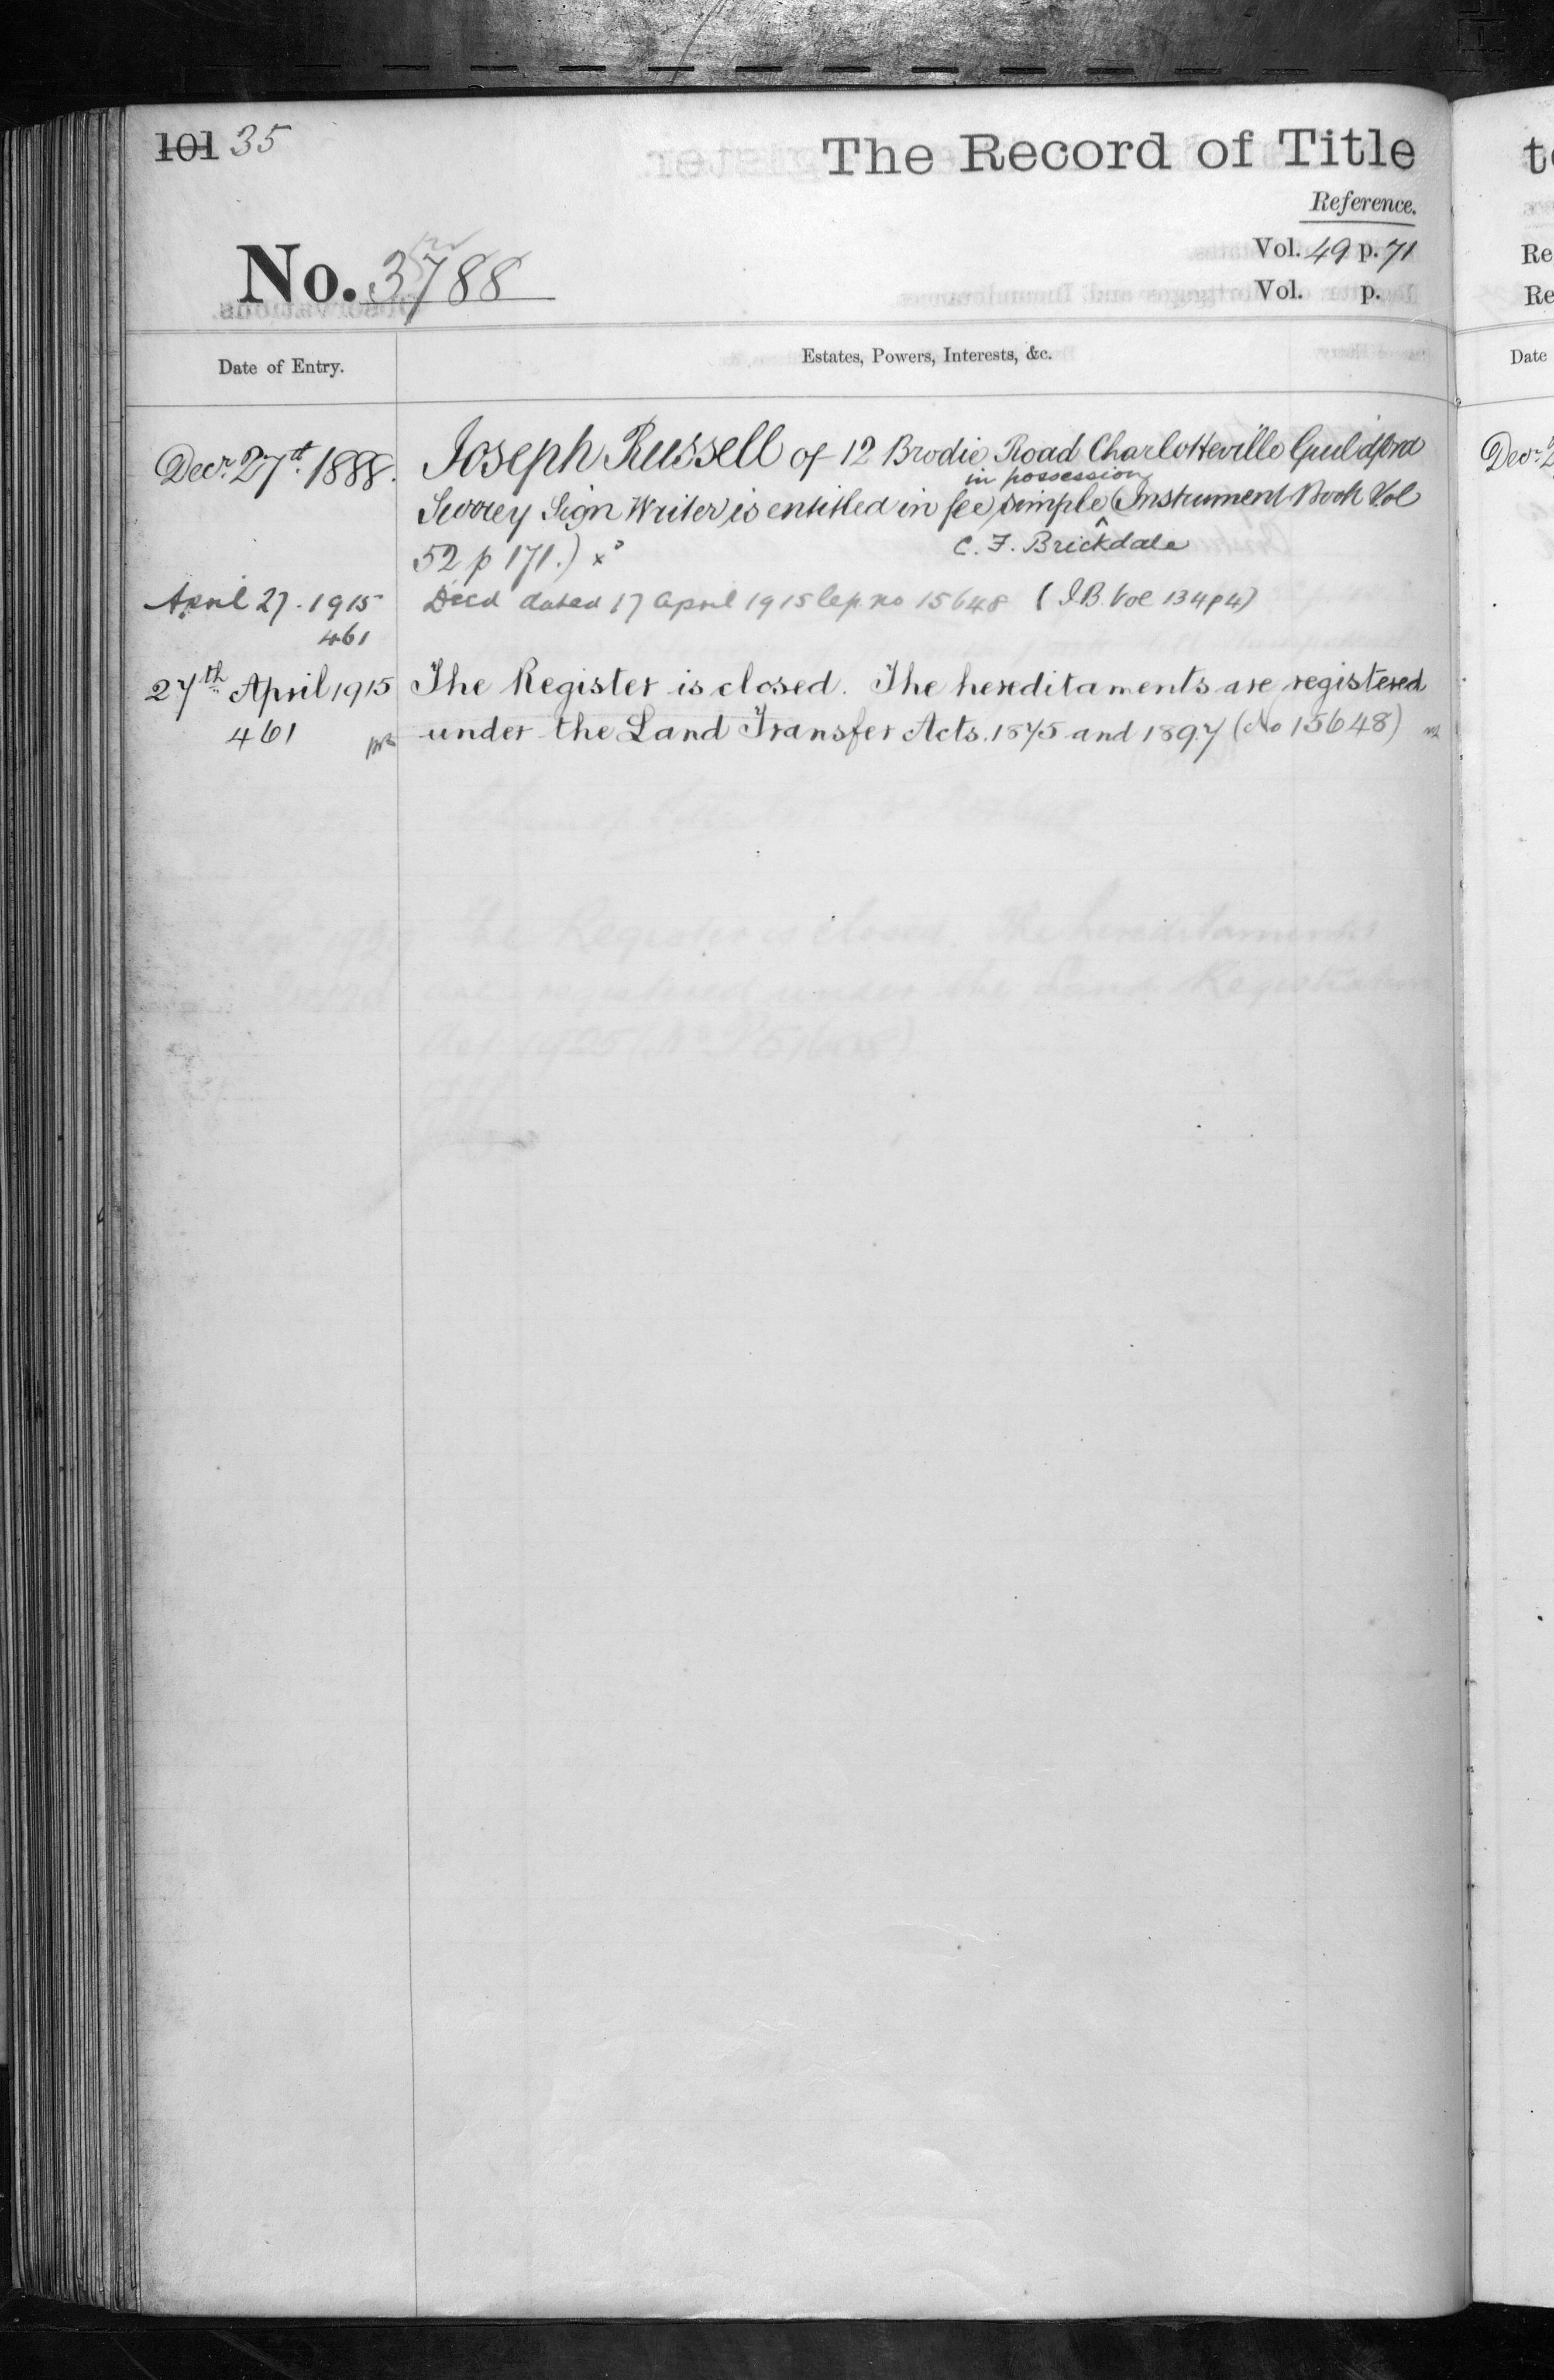 101 35
The Record of Title
Reference.
No. 3788
Vol. 49 p. 71
Vol. p.
Date of Entry.
Estates, Powers, Interests, &c.
Decr. 27th. 1888.
Joseph Russell of 12 Brodie Road Charlotteville Guildford
in possession
Surrey Sign Writer is entitled in fee simple ^ (Instrument Book Vol
52 p 171.) x
C. F. Brickdale
April 27. 1915
Deed dated 17 April 1915 no 15648 (I.B. Vol 134 p 4)
461
27th April 1915
The Register is closed. The hereditaments are registered
461
under the Land Transfer Acts. 1875 and 1897 (No 15648)
The Register is closed. The hereditaments
are registered under the Land Registration
t
Re
Re
Date
Decr. 2